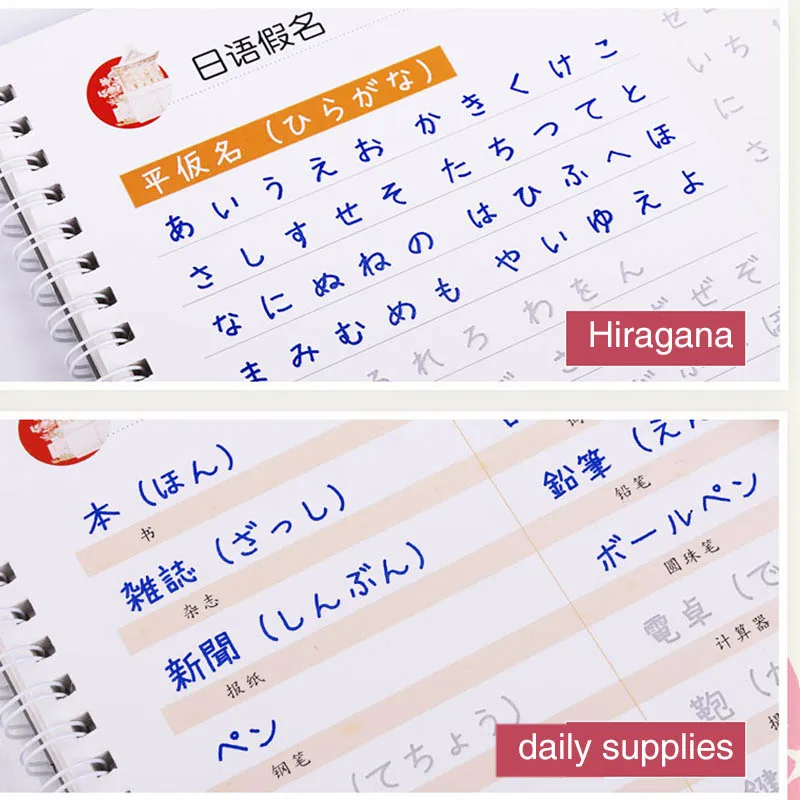 日语假名
平仮名（ひらがな）
あいうえお かきくけこ
さしすせそ たちつてと
なにぬねの はひふへほ
まみむめも やいゆえよ
れろ わをん
せ
いち
に
さ
Hiragana
本（ほん）
书
雑誌（ざっし）
杂志
新聞（しんぶん）
报纸
ペン
钢笔
（てちょう）
鉛筆（え
铅笔
ボールペン
圆珠笔
電卓（で
计算器
鞄（か
daily supplies